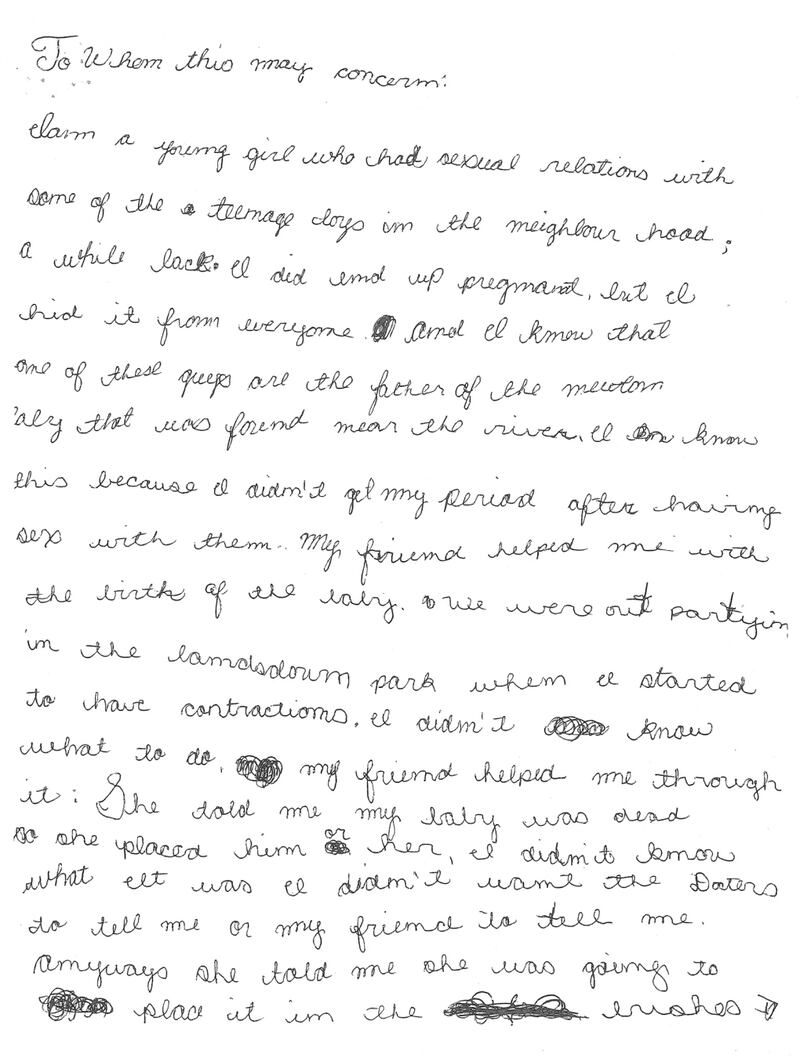 To Whom this may concern:
I am a young girl who had sexual relations with
some of the teenage boys in the neighbour hood;
a while back. I did end up pregnant, but I
hid it from everyone. And I know that
one of these guys are the father of the newborn
baby that was found near the river. I know
this because I didn't get my period after having
sex with them. My friend helped me with
the birth of the baby. we were out partyin
in the landsdown park when I started
to have contractions. I didn't know
what to do, my friend helped me through
it: She told me my baby was dead
so she placed him or her, I didn't know
what it was I didn't want the
to tell me or my friend to tell me.
Anyways she told me she was going to
place it in the bushes